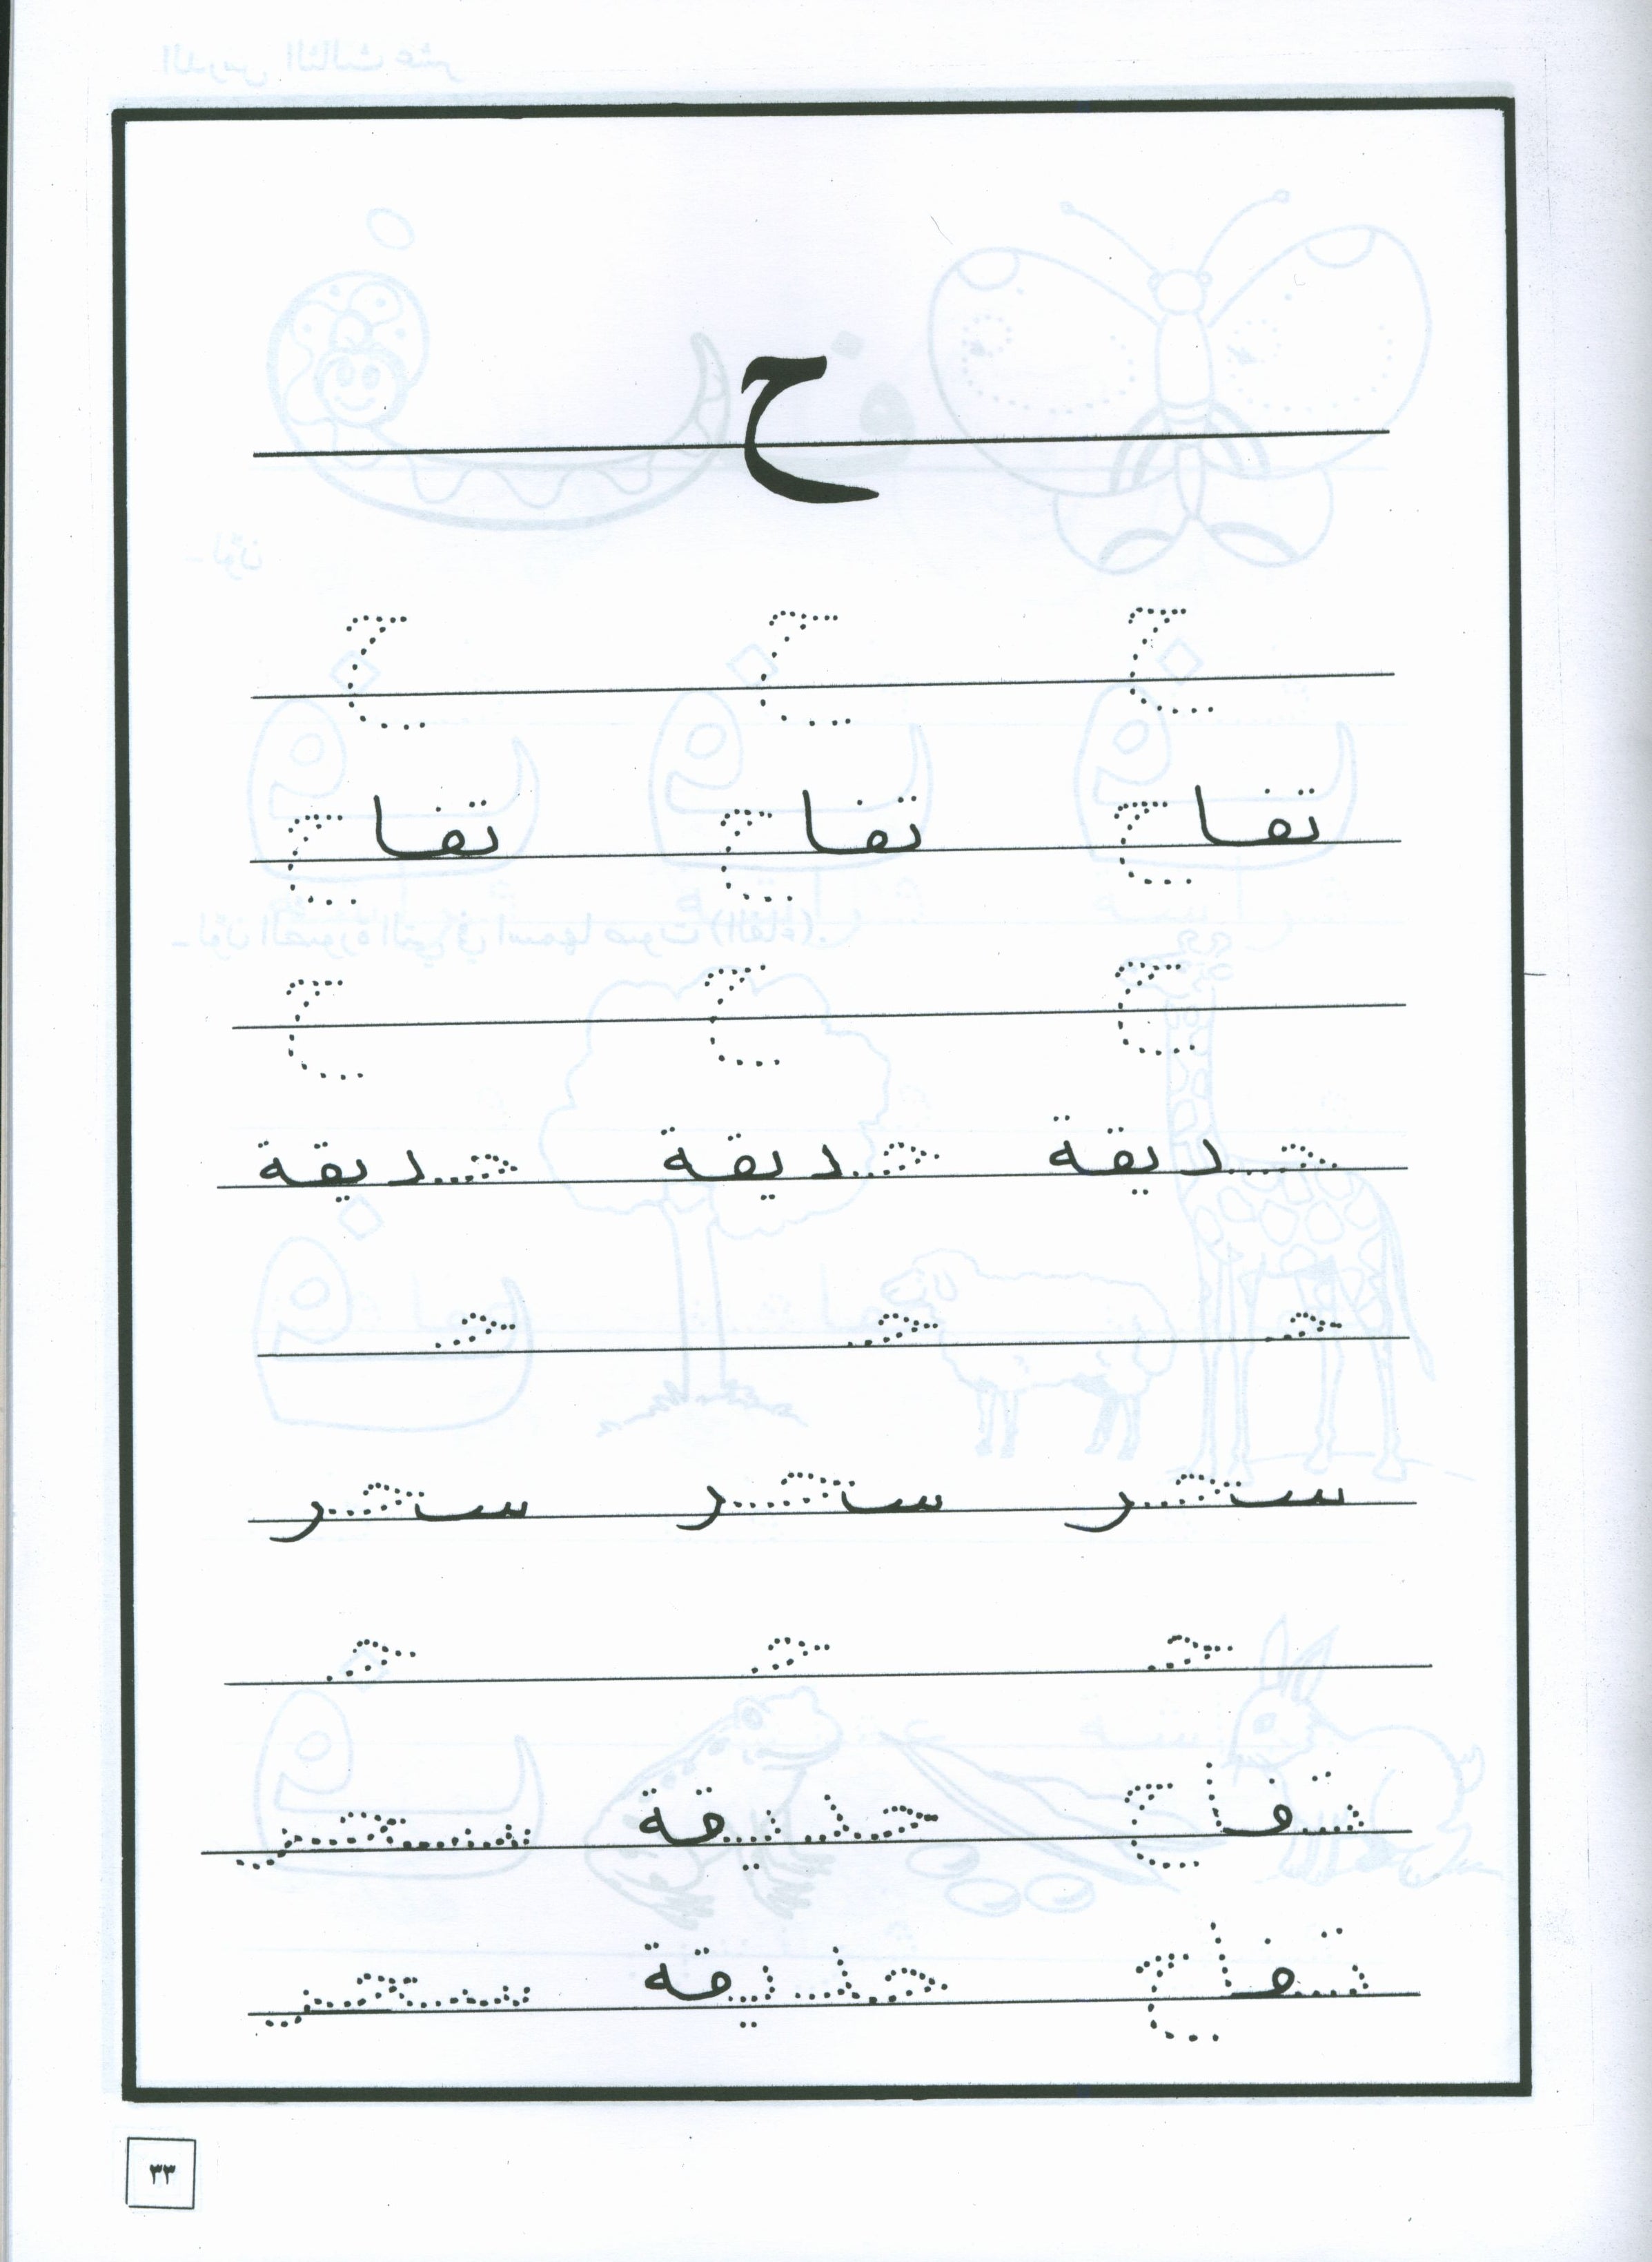 ح
ح ح ح
تفاح تفاح تفاح
ح ح ح
حديقة حديقة حديقة
حـ حـ حـ
سحر سحر سحر
حـ حـ حـ
تفاح حديقة سحر
تفاح حديقة سحر
٣٣